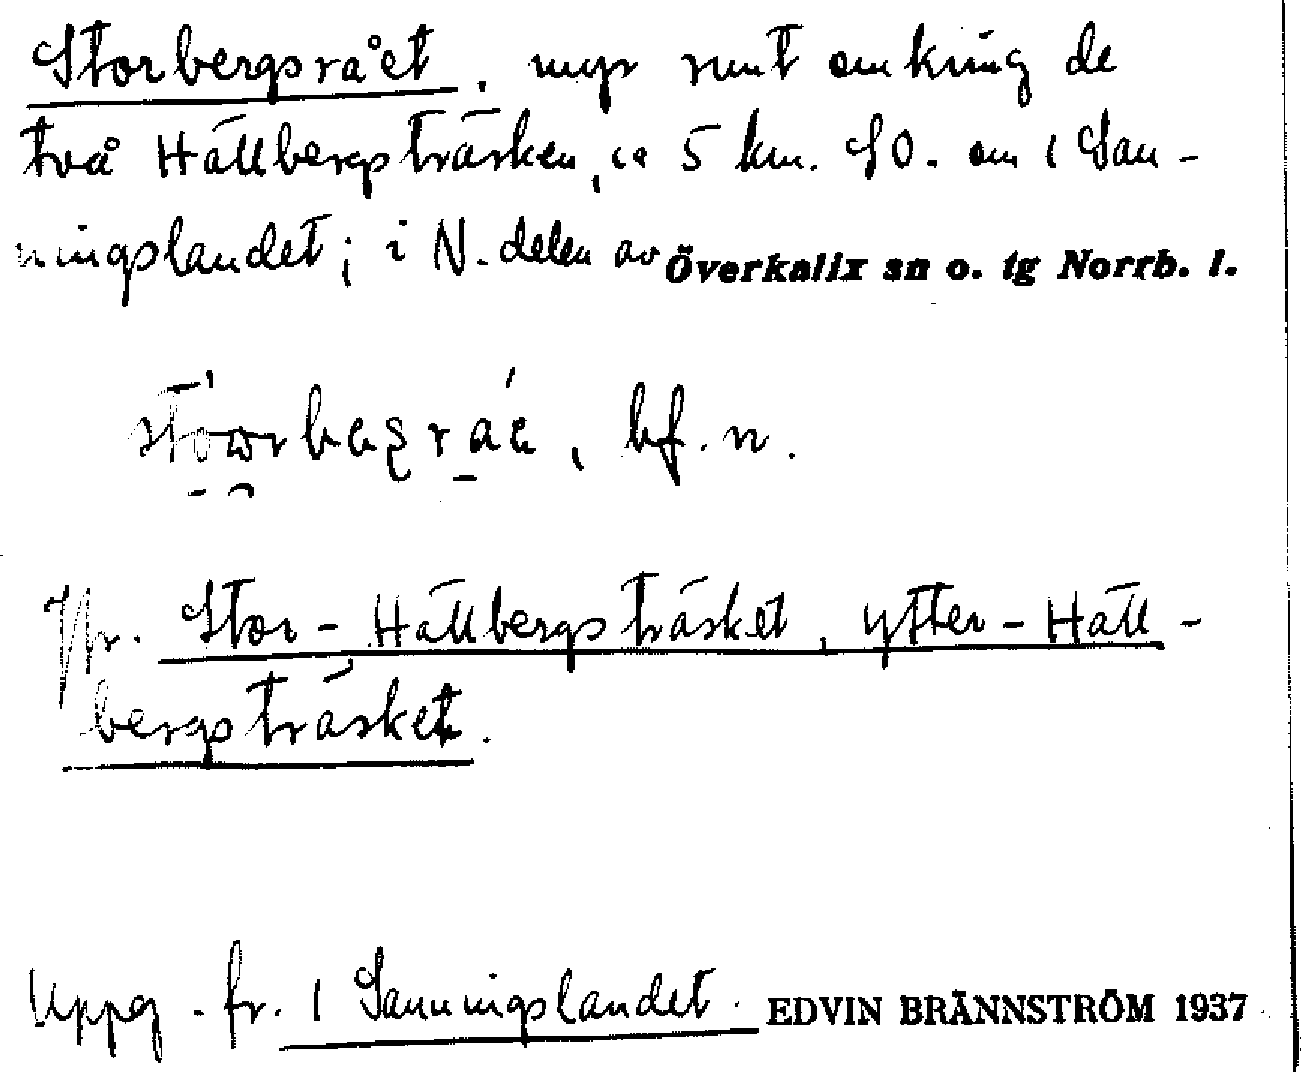 Storbergsrået, myr runt omkring de
två Hällbergsträsken, ca 5 km. SO. om 1 San-
ningslandet; i N. delen av Överkalix sn o. tg Norrb. l.
bf. n.
Jfr. Stor-Hällbergsträsket, Ytter-Häll-
bergsträsket.
Uppg. fr. 1 Sanningslandet. EDVIN BRÄNNSTRÖM 1937